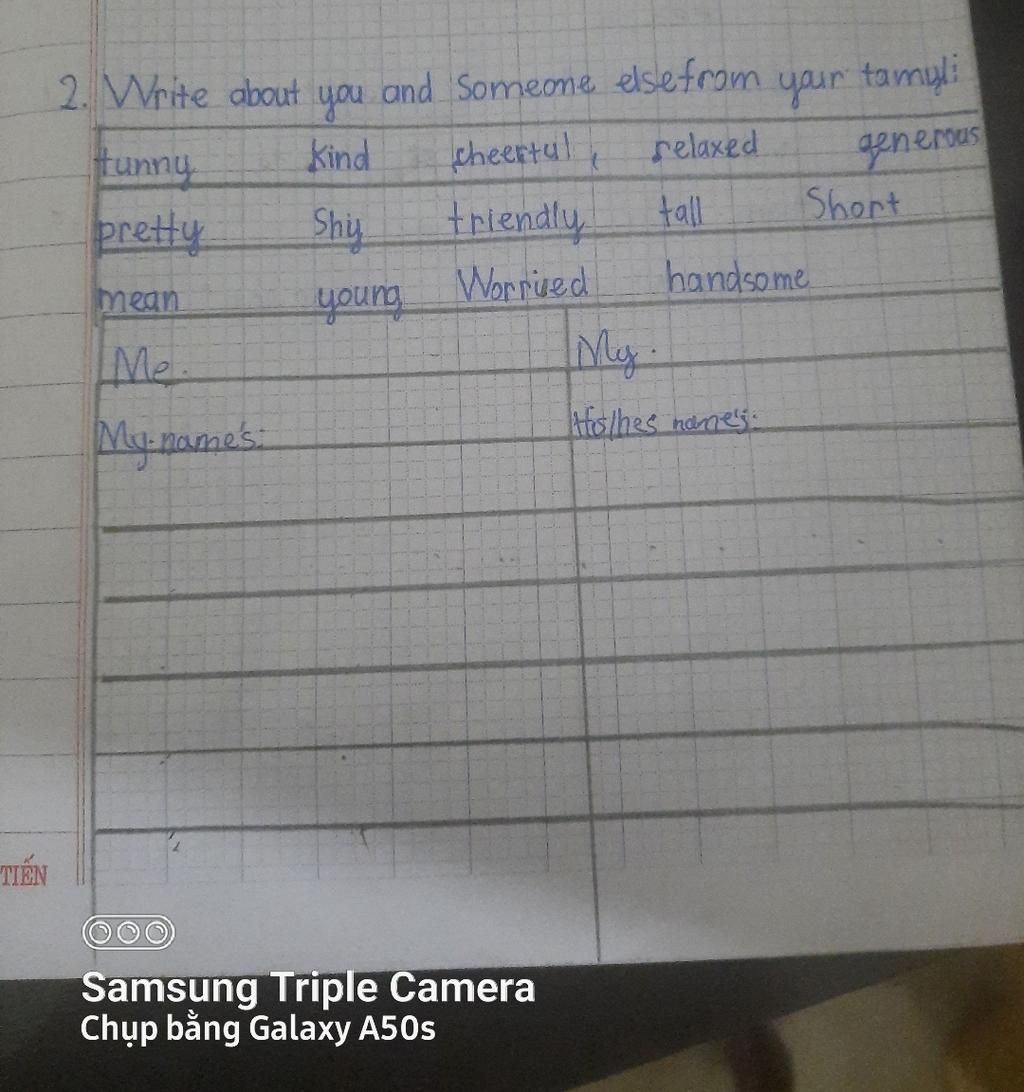 2. Write about you and Someone else from your tamyli
tunny kind cheertul, relaxed generous
pretty Shy triendly tall Short
mean young Worrued handsome
Me. My.
My name's: His/hes name's:
TIẾN
Samsung Triple Camera
Chụp bằng Galaxy A50s